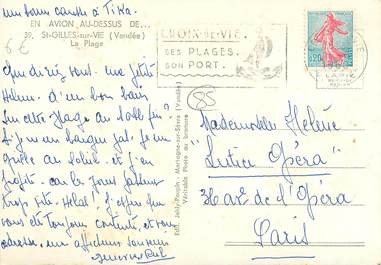 un bon candh à Tika.
EN AVION AU-DESSUS DE...
39. St-GILLES-sur-VIE (Vendée)
La Plage
6 €
Que diriez vous, ma petite
Hélène, d'un bon bain
sur cette plage au sable fin?
Si j'en
grille au soleil et j'en
profite car les jours passent
trop vite. Hélas! J'espère que
vous êtes toujours contente, et vous
adresse, un affectueux souvenir
Edit. Jehly-Poupin - Mortagne-sur-Sèvre (Vendée)
Véritable Photo au bromure
CROIX-DE-VIE
SES PLAGES
SON PORT.
85
0,20
Mademoiselle Hélène
"Lutice Opéra"
36 av. de l'Opéra
Paris